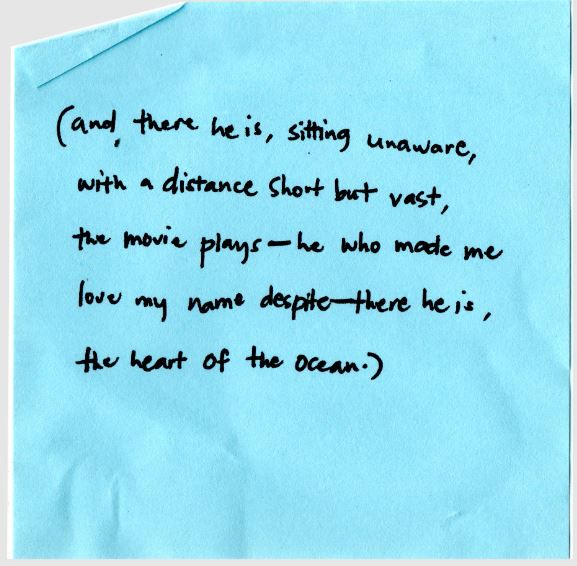 (and, there he is, sitting unaware,
with a distance short but vast,
the movie plays—he who made me
love my name despite—there he is,
the heart of the ocean.)